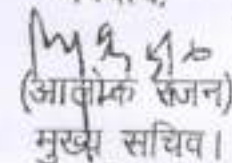 (आलोक रंजन)
मुख्य सचिव।